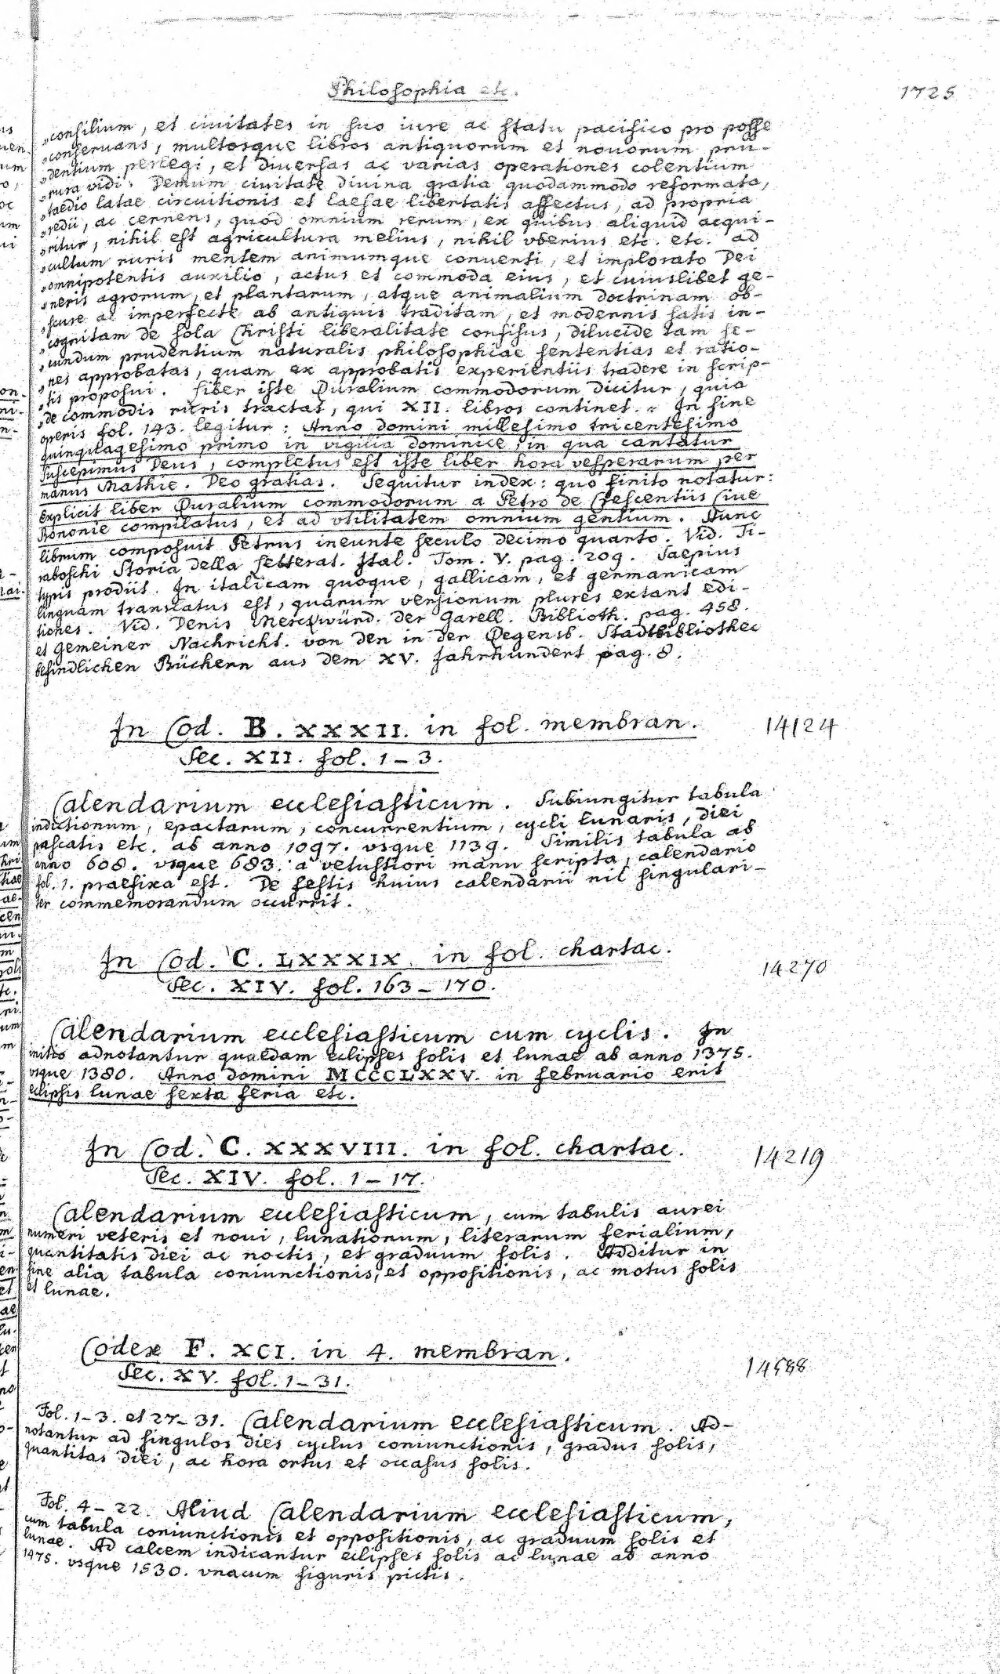 Philosophia etc.
1725
„consilium, et ciuitates in suo iure ac statu pacifico pro posse
„conseruans, multosque libros antiquorum et nouorum pru-
„dentium perlegi, et diuersas ac varias operationes colentium
„rura vidi. Demum ciuitate diuina gratia quodammodo reformata,
„taedio latae circuitionis et laesae libertatis affectus, ad propria
„redii, ac cernens, quod omnium rerum, ex quibus aliquid acqui-
„ritur, nihil est agricultura melius, nihil vberius etc. etc. ad
„cultum ruris mentem animumque conuerti, et implorato Dei
„omnipotentis auxilio, actus et commoda eius, et cuiuslibet ge-
„neris agrorum, et plantarum, atque animalium doctrinam ob-
„scure ac imperfecte ab antiquis traditam, et modernis satis in-
„cognitam de sola Christi liberalitate consisus, dilucide tam se-
„cundum prudentium naturalis philosophiae sententias et ratio-
„nes approbatas, quam ex approbatis experientiis tradere in scrip-
„tis proposui. Liber iste Ruralium commodorum dicitur, quia
„de commodis ruris tractat, qui XII. libros continet.„ In fine
operis fol. 143. legitur: Anno domini millesimo tricentesimo
quinquagesimo primo in vigilia dominice, in qua cantatur
Suscepimus Deus, completus est iste liber hora vesperarum per
manus Mathie. Deo gratias. Sequitur index: quo finito notatur:
Explicit liber Ruralium commodorum a Petro de Crescentiis Ciue
Bononie compilatus, et ad vtilitatem omnium gentium. Hunc
librum composuit Petrus ineunte seculo decimo quarto. Vid. Ti-
raboschi Storia della letterat. Ital. Tom. V. pag. 209. Saepius
typis prodiit. In italicam quoque, gallicam, et germanicam
linguam translatus est, quarum versionum plures extant edi-
tiones. Vid. Denis Merckwürd. der Garell. Biblioth. pag. 458.
et Gemeiner Nachricht. von den in der Regensb. Stadtbibliothec
befindlichen Büchern aus dem XV. Jahrhundert pag. 8.
In Cod. B. XXXII. in fol. membran.
14124
Sec. XII. fol. 1–3.
Calendarium ecclesiasticum. Subiungitur tabula
indictionum, epactarum, concurrentium, cycli lunaris, diei
pascatis etc. ab anno 1097. vsque 1139. Similis tabula ab
anno 608. vsque 683. a vetustiori manu scripta, calendario
fol. 1. praefixa est. De festis huius calendarii nil singulari-
ter commemorandum occurrit.
In Cod. C. LXXXIX. in fol. chartac.
14270
Sec. XIV. fol. 163–170.
Calendarium ecclesiasticum cum cyclis. In
initio adnotantur quaedam eclipses solis et lunae ab anno 1375.
vsque 1380. Anno domini MCCCLXXV. in februario erit
eclipsis lunae sexta feria etc.
In Cod. C. XXXVIII. in fol. chartac.
14219
Sec. XIV. fol. 1–17.
Calendarium ecclesiasticum, cum tabulis aurei
numeri veteris et noui, lunationum, literarum ferialium,
quantitatis diei ac noctis, et graduum solis. Additur in
fine alia tabula coniunctionis, et oppositionis, ac motus solis
et lunae.
Codex F. XCI. in 4. membran.
14588
Sec. XV. fol. 1–31.
Fol. 1–3. et 27–31. Calendarium ecclesiasticum. Ad-
notantur ad singulos dies cyclus coniunctionis, gradus solis,
quantitas diei, ac hora ortus et occasus solis.
Fol. 4–22. Aliud Calendarium ecclesiasticum,
cum tabula coniunctionis et oppositionis, ac graduum solis et
lunae. Ad calcem indicantur eclipses solis ac lunae ab anno
1475. vsque 1530. vnacum figuris pictis.